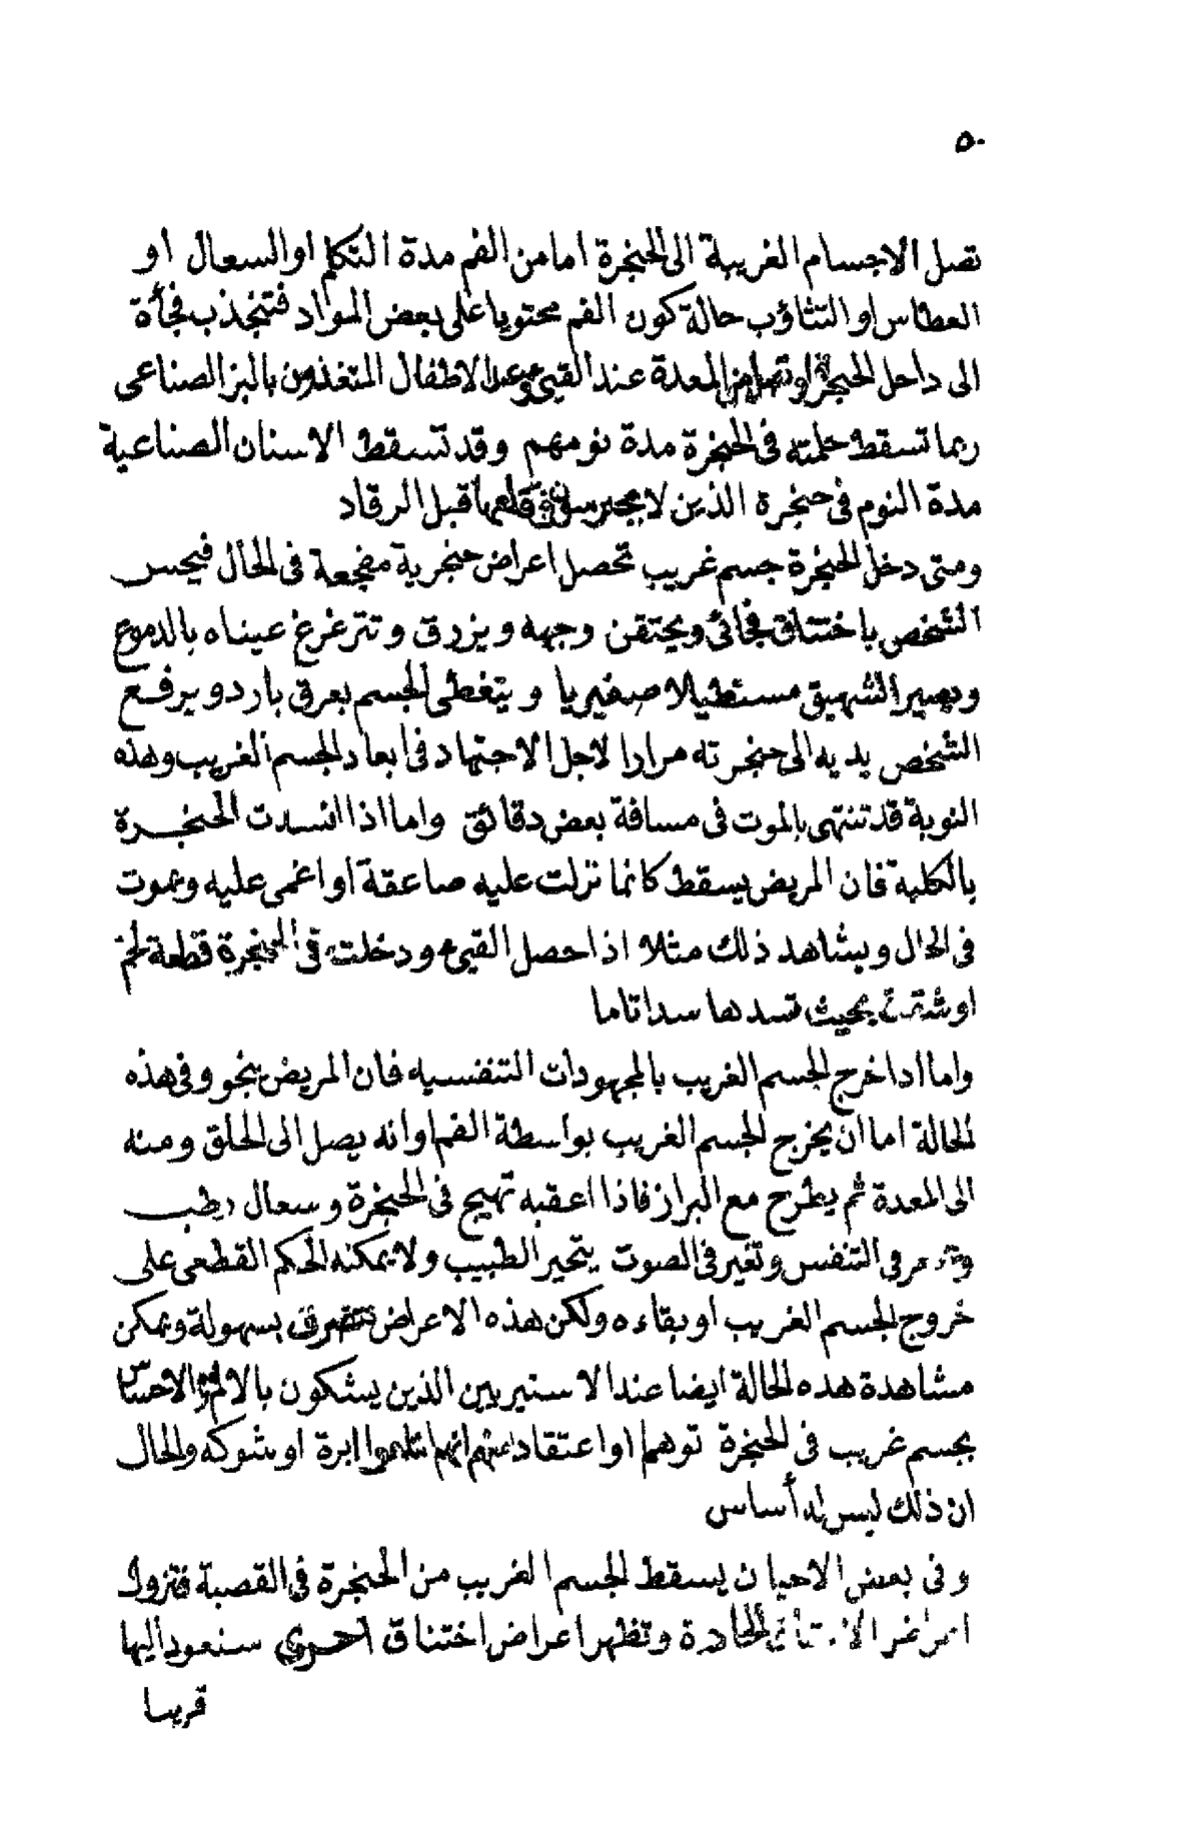 ٥٠
تصل الاجسام الغريبة الى الحنجرة اما من الفم مدة التكلم او السعال او
العطاس او التثاؤب حالة كون الفم محتويا على بعض المواد فتنجذب فجأة
الى داخل الحنجرة او من المعدة عند القيئ وعند الاطفال المتغذين بالبز الصناعى
ربما تسقط حلمته فى الحنجرة مدة نومهم وقد تسقط الاسنان الصناعية
مدة النوم فى حنجرة الذين لا يحترسون فى قلعها قبل الرقاد
ومتى دخل الحنجرة جسم غريب تحصل اعراض حنجرية مفجعة فى الحال فيحس
الشخص باختناق فجائى ويحتقن وجهه ويزرق وتترغرغ عيناه بالدموع
ويصير الشهيق مستطيلا صفيريا ويتغطى الجسم بعرق بارد ويرفع
الشخص يديه الى حنجرته مرارا لاجل الاجتهاد فى ابعاد الجسم الغريب وهذه
النوبة قد تنتهى بالموت فى مسافة بعض دقائق واما اذا انسدت الحنجرة
بالكلية فان المريض يسقط كانما نزلت عليه صاعقة او اغمى عليه ويموت
فى الحال ويشاهد ذلك مثلا اذا حصل القيئ ودخلت فى الحنجرة قطعة لحم
او بحيث تسدها سدا تاما
واما اذا خرج الجسم الغريب بالمجهودات التنفسيه فان المريض ينجو وفى هذه
الحالة اما ان يخرج الجسم الغريب بواسطة الفم او انه يصل الى الحلق ومنه
الى المعدة ثم يطرح مع البراز فاذا اعقبه تهيج فى الحنجرة وسعال رطب
فى التنفس وتغير فى الصوت يتحير الطبيب ولا يمكنه الحكم القطعى على
خروج الجسم الغريب او بقاءه ولكن هذه الاعراض تتصرف بسهولة ويمكن
مشاهدة هذه الحالة ايضا عند الاستيريين الذين يشكون بالالم والاحساس
بجسم غريب فى الحنجرة توهما او اعتقادا منهم انهم ابتلعوا ابرة او شوكه والحال
ان ذلك ليس له أساس
وفى بعض الاحيان يسقط الجسم الغريب من الحنجرة فى القصبة فتزول
الحادة وتظهر اعراض اختناق اخرى سنعود اليها
قريبا